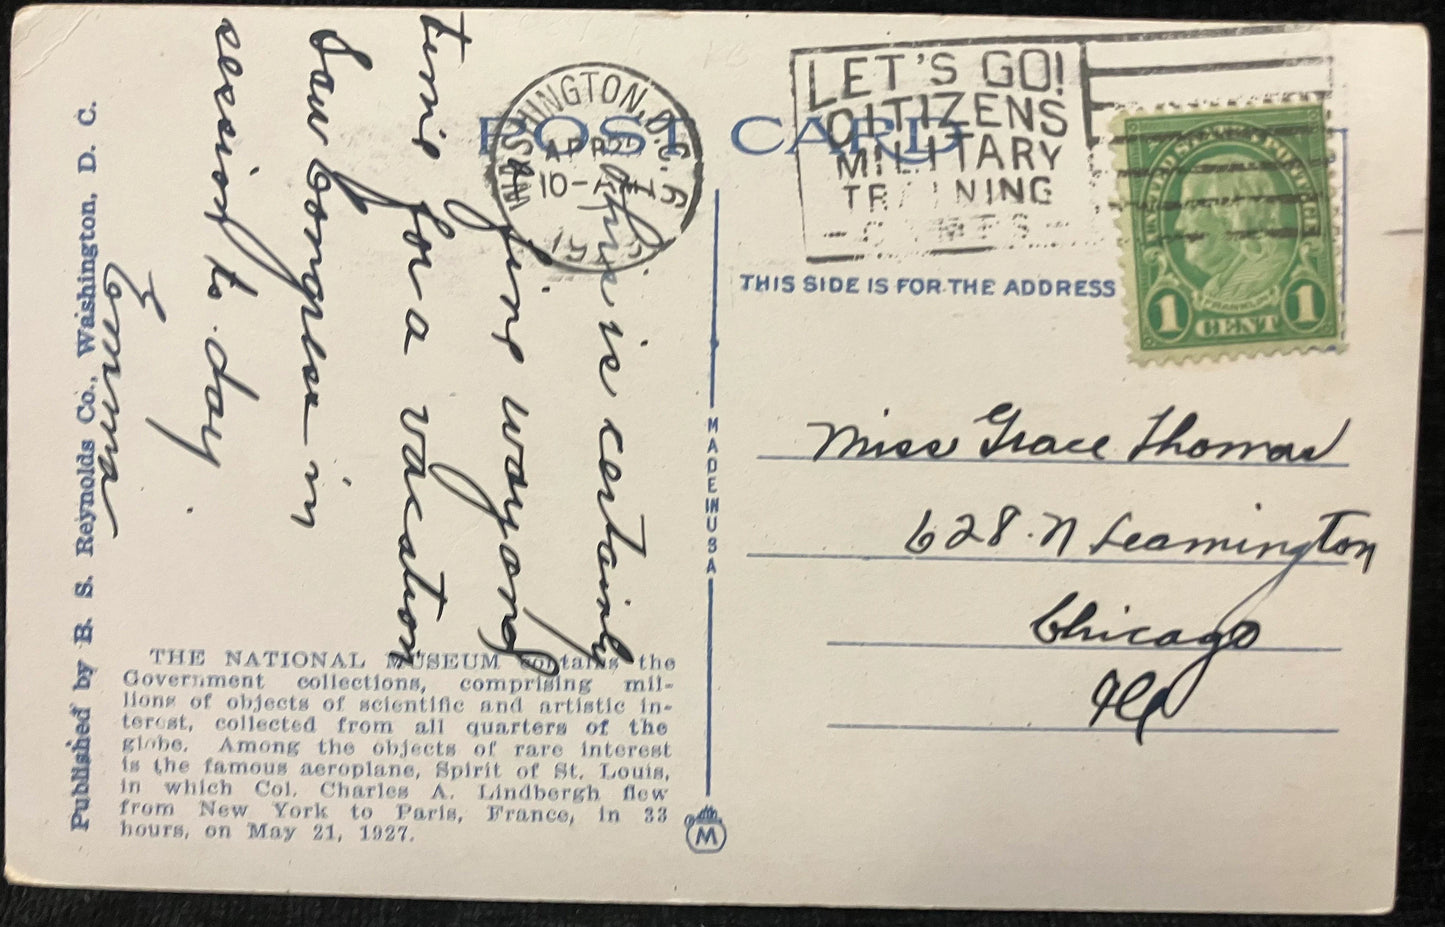 POST CARD
WASHINGTON, D.C. 6
APR
10-
LET'S GO!
CITIZENS
MILITARY
TRAINING
CAMPS
UNITED STATES POSTAGE
FRANKLIN
1 CENT 1
THIS SIDE IS FOR THE ADDRESS
This is certainly
fine way
time for a vacation
Saw Congress in
session to day.
Emma
Miss Grace Thomas
628 N Leamington
Chicago
Ill
MADE IN USA
M
THE NATIONAL MUSEUM contains the
Government collections, comprising mil-
lions of objects of scientific and artistic in-
terest, collected from all quarters of the
globe. Among the objects of rare interest
is the famous aeroplane, Spirit of St. Louis,
in which Col. Charles A. Lindbergh flew
from New York to Paris, France, in 33
hours, on May 21, 1927.
Published by B. S. Reynolds Co., Washington, D. C.